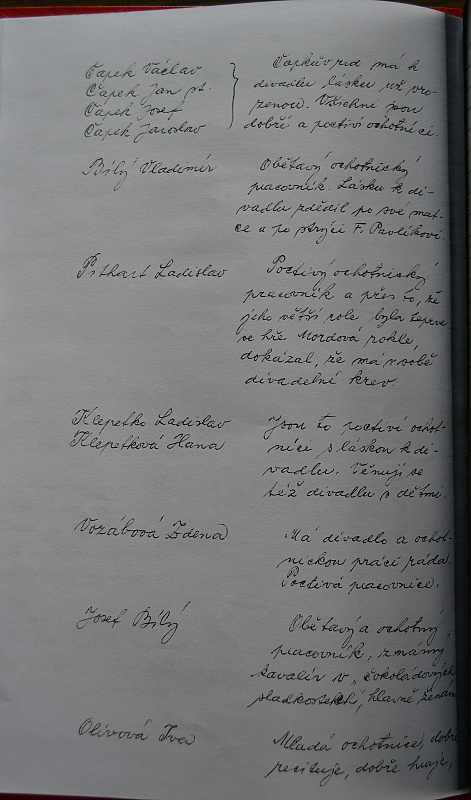 Čapek Václav
Čapek Jan st.
Čapek Josef
Čapek Jaroslav
Čapkův rod má k
divadlu lásku už vro-
zenou. Všichni jsou
dobří a poctiví ochotníci.
Bílý Vladimír
Obětavý ochotnický
pracovník. Lásku k di-
vadlu zdědil po své mat-
ce a po strýci F. Pavlíkovi.
Pithart Ladislav
Poctivý ochotnický
pracovník a přes to, že
jeho větší role byla teprve
ve hře Mordová rokle,
dokázal, že má v sobě
divadelní krev.
Klepetko Ladislav
Klepetková Hana
Jsou to poctiví ochot-
níci s láskou k di-
vadlu. Věnují se
též divadlu s dětmi.
Vozábová Zdena
Má divadlo a ochot-
nickou práci ráda.
Poctivá pracovnice.
Josef Bílý
Obětavý a ochotný
pracovník, známý
kavalír v „čokoládových
sladkostech, hlavně ženám
Olivová Iva
Mladá ochotnice, dobře
recituje, dobře hraje,